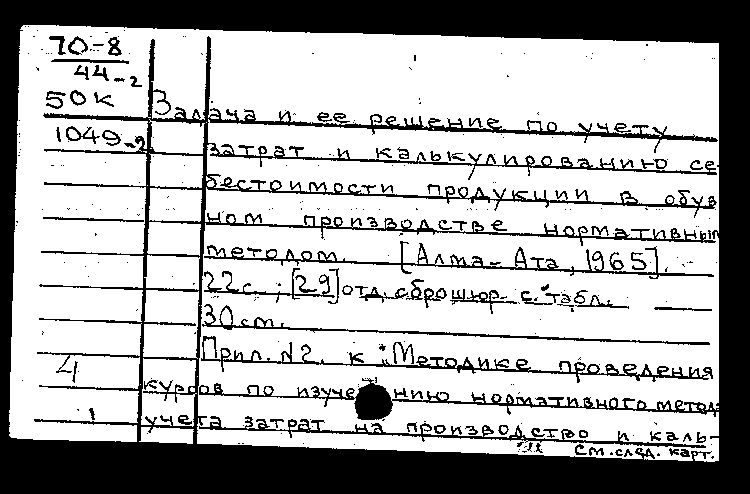 70-8
44-2
50к
Задача и ее решение по учету
1049-2
затрат и калькулированию се-
бестоимости продукции в обув
ном производстве нормативным
методом. [Алма-Ата, 1965].
22с.; [29] отд. сброшюр. с. табл.
30см.
Прил. №2. к "Методике проведения
4
курсов по изучению нормативного метода
1
учета затрат на производство и каль-
См. след. карт.